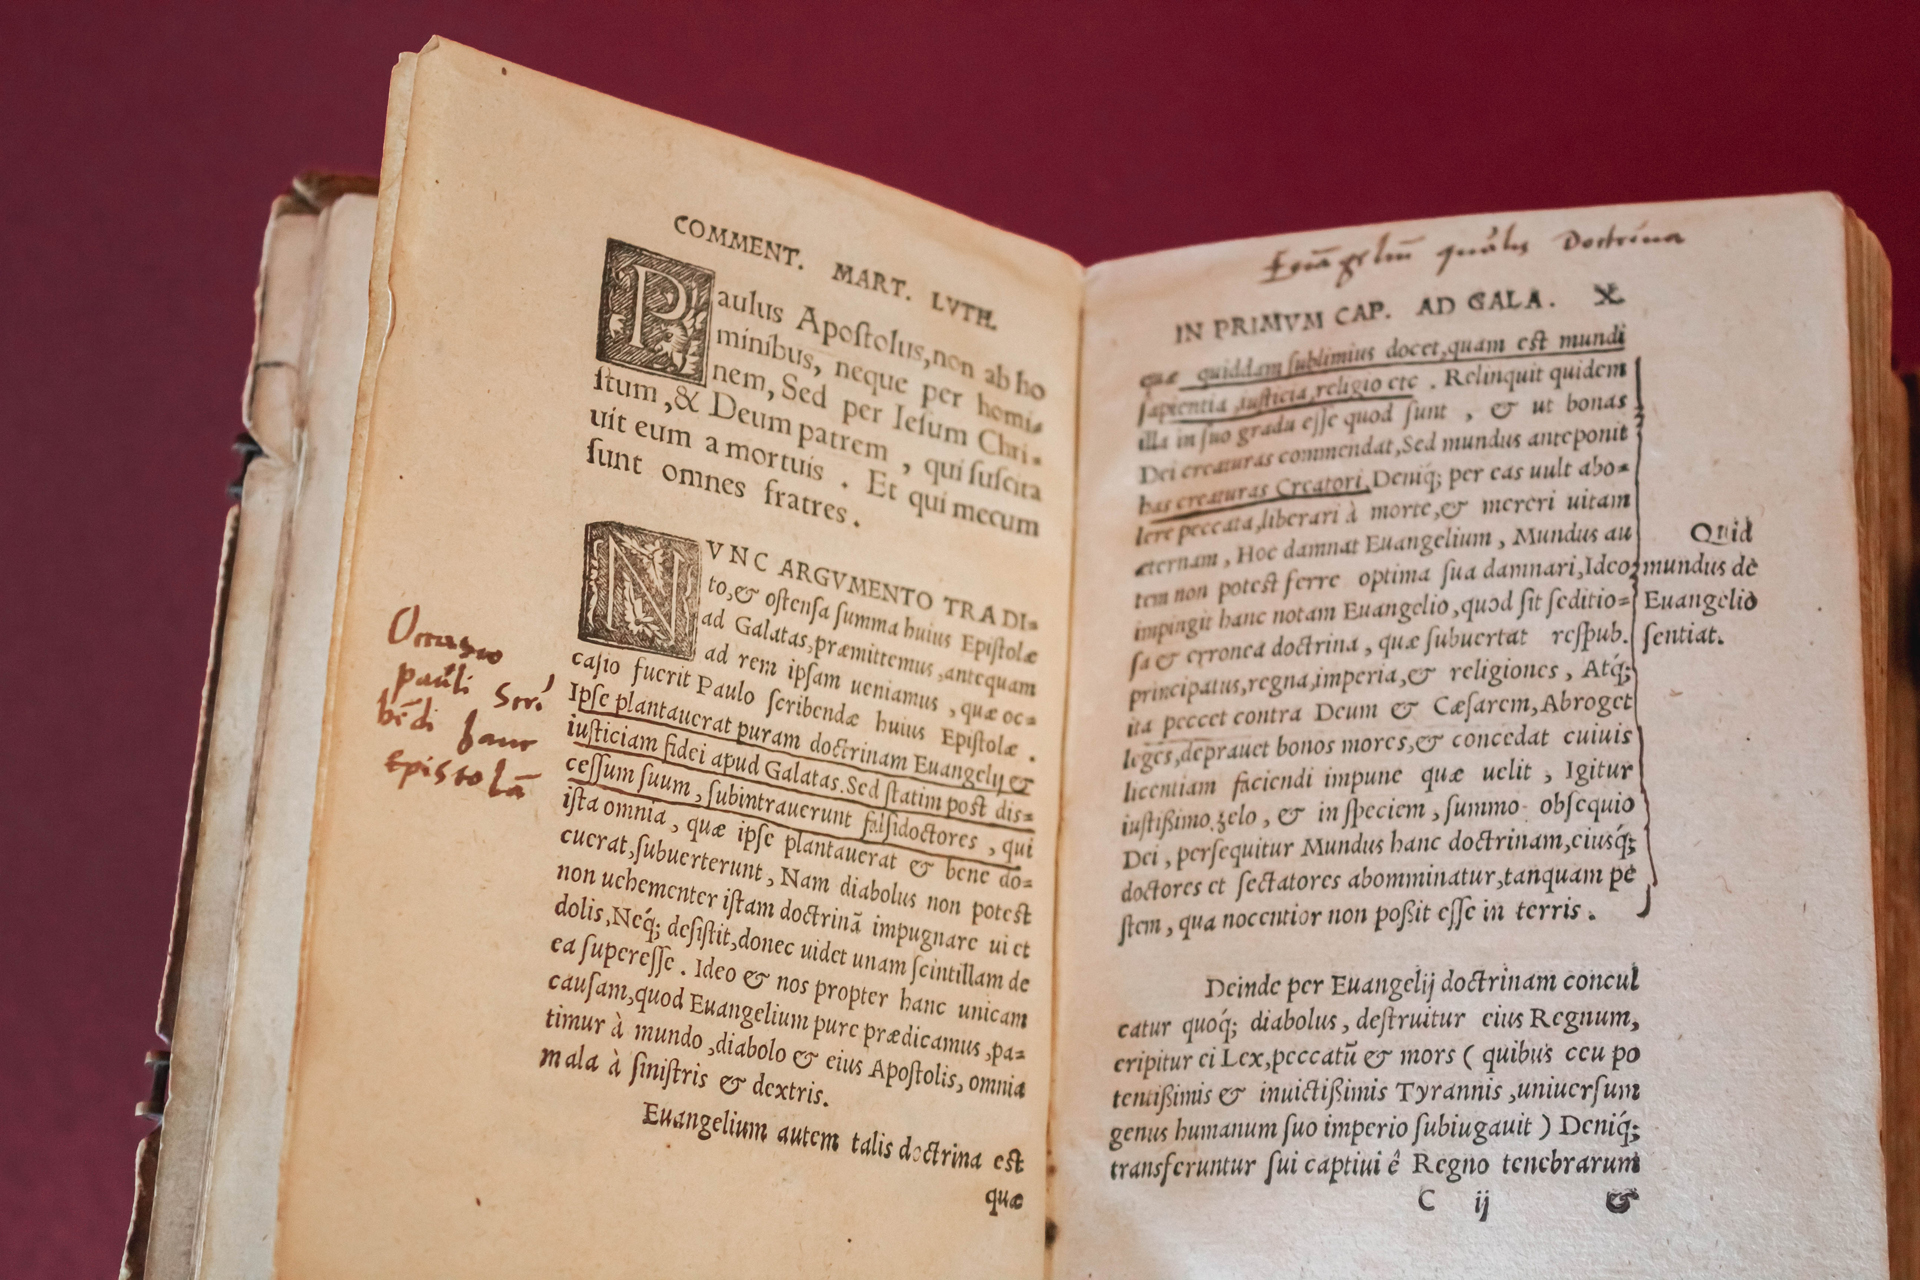 COMMENT. MART. LVTH.
Paulus Apoſtolus, non ab ho
minibus, neque per homi-
nem, Sed per Ieſum Chri-
ſtum, & Deum patrem, qui ſuſcita
uit eum a mortuis. Et qui mecum
ſunt omnes fratres.
NVNC ARGVMENTO TRADI-
to, & oſtenſa ſumma huius Epiſtolæ
ad Galatas, præmittemus, antequam
ad rem ipſam ueniamus, quæ oc-
caſio fuerit Paulo ſcribendæ huius Epiſtolæ.
Ipſe plantauerat puram doctrinam Euangelij &
iuſticiam fidei apud Galatas. Sed ſtatim poſt dis-
ceſſum ſuum, ſubintrauerunt falſidoctores, qui
iſta omnia, quæ ipſe plantauerat & bene do-
cuerat, ſubuerterunt, Nam diabolus non poteſt
non uehementer iſtam doctrinã impugnare ui et
dolis, Neq́; deſiſtit, donec uidet unam ſcintillam de
ea ſupereſſe. Ideo & nos propter hanc unicam
cauſam, quod Euangelium pure prædicamus, pa-
timur à mundo, diabolo & eius Apoſtolis, omnia
mala à ſiniſtris & dextris.
Euangelium autem talis doctrina eſt
quæ
Occasio
pauli scri
bēdi hanc
Epistolā
Euāgeliū qualis Doctrina
IN PRIMVM CAP. AD GALA. X
quæ quiddam ſublimius docet, quam eſt mundi
ſapientia, iuſticia, religio etc. Relinquit quidem
illa in ſuo gradu eſſe quod ſunt, & ut bonas
Dei creaturas commendat, Sed mundus anteponit
has creaturas Creatori, Deniq́; per eas uult abo-
lere peccata, liberari à morte, & mereri uitam
æternam, Hoc damnat Euangelium, Mundus au
tem non poteſt ferre optima ſua damnari, Ideo
impingit hanc notam Euangelio, quod ſit ſeditio-
ſa & erronea doctrina, quæ ſubuertat reſpub.
principatus, regna, imperia, & religiones, Atq́;
ita peccet contra Deum & Cæſarem, Abroget
leges, deprauet bonos mores, & concedat cuiuis
licentiam faciendi impune quæ uelit, Igitur
iuſtißimo zelo, & in ſpeciem, ſummo obſequio
Dei, perſequitur Mundus hanc doctrinam, eiusq́;
doctores et ſectatores abomminatur, tanquam pe
ſtem, qua nocentior non poßit eſſe in terris.
Quid
mundus de
Euangelio
ſentiat.
Deinde per Euangelij doctrinam concul
catur quoq́; diabolus, deſtruitur eius Regnum,
eripitur ei Lex, peccatũ & mors ( quibus ceu po
tentißimis & inuictißimis Tyrannis, uniuerſum
genus humanum ſuo imperio ſubiugauit ) Deniq́;
transferuntur ſui captiui ê Regno tenebrarum
C ij &